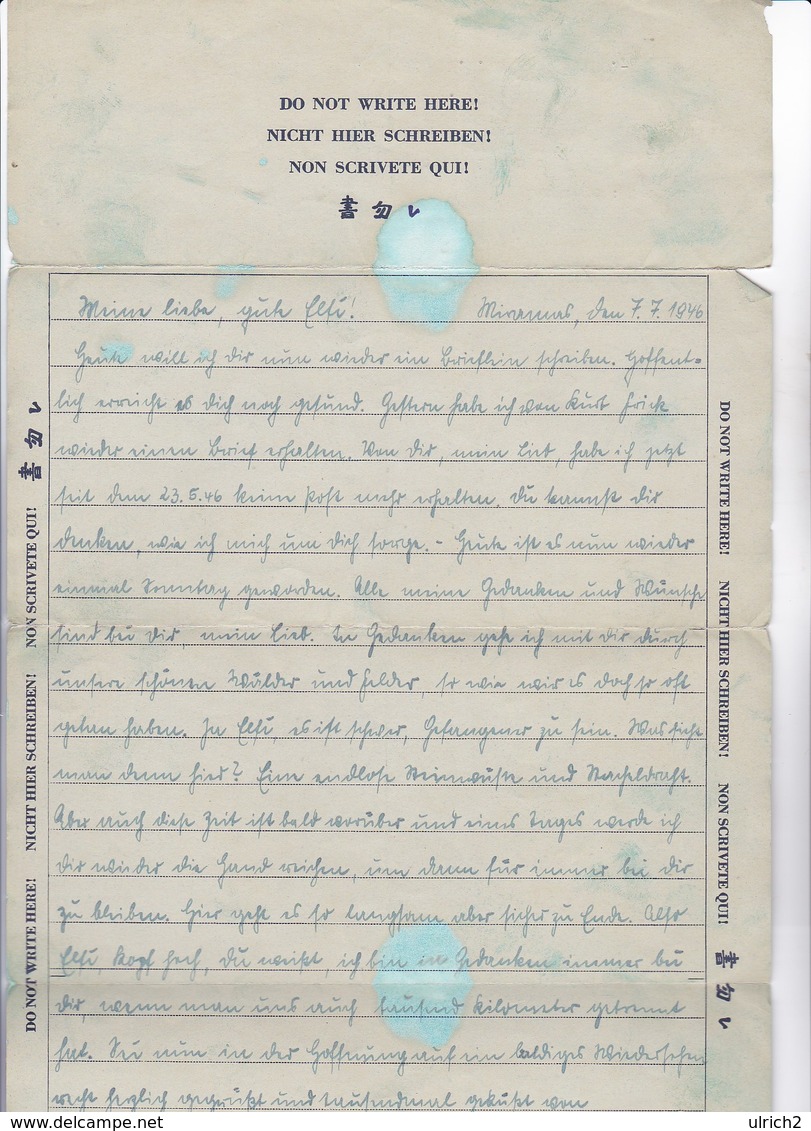 DO NOT WRITE HERE!
NICHT HIER SCHREIBEN!
NON SCRIVETE QUI!
書勿レ
Meine liebe, gute Elfi! Miramas, den 7.7.1946
Heute will ich dir nun wieder ein Brieflein schreiben. Hoffent=
lich erreicht es dich noch gesund. Gestern habe ich von Kurt Frick
wieder einen Brief erhalten. Von Dir, mein Lieb, habe ich jetzt
seit dem 23.5.46 keine Post mehr erhalten. Du kannst dir
denken, wie ich mich um dich sorge. - Heute ist es nun wieder
einmal Sonntag geworden. Alle meine Gedanken und Wünsche
sind bei Dir, mein Lieb. In Gedanken gehe ich mit dir durch
unsere schönen Wälder und Felder, so wie wir es doch so oft
getan haben. Ja Elfi, es ist schwer, Gefangener zu sein. Was sieht
man denn hier? Eine endlose Steinwüste und Stacheldraht.
Aber auch diese Zeit ist bald vorüber und eines Tages werde ich
dir wieder die Hand reichen, um dann für immer bei dir
zu bleiben. Hier geht es so langsam aber sicher zu Ende. Also
Elfi, Kopf hoch, du weißt, ich bin in Gedanken immer bei
dir, wenn man uns auch tausend Kilometer getrennt
hat. Sei nun in der Hoffnung auf ein baldiges Wiedersehen
recht herzlich gegrüßt und tausendmal geküßt von
DO NOT WRITE HERE! NICHT HIER SCHREIBEN! NON SCRIVETE QUI! 書勿レ
DO NOT WRITE HERE! NICHT HIER SCHREIBEN! NON SCRIVETE QUI! 書勿レ
www.delcampe.net
ulrich2